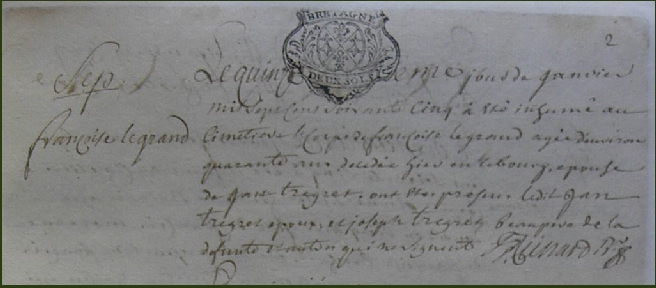 BRETAGNE
DEUX SOLS
2
Sep.
françoise legrand
Le quinzieme jour de janvier
mil sept cent soixante cinq a été inhumé au
Cimetiere le Corps de françoise legrand agée d'environ
quarante ans decedée hier en Kbourg, epouse
de Jan tregret, ont été présens ledit Jan
tregret epoux, et joseph tregret beaupere de la
defunte et autres qui ne signent